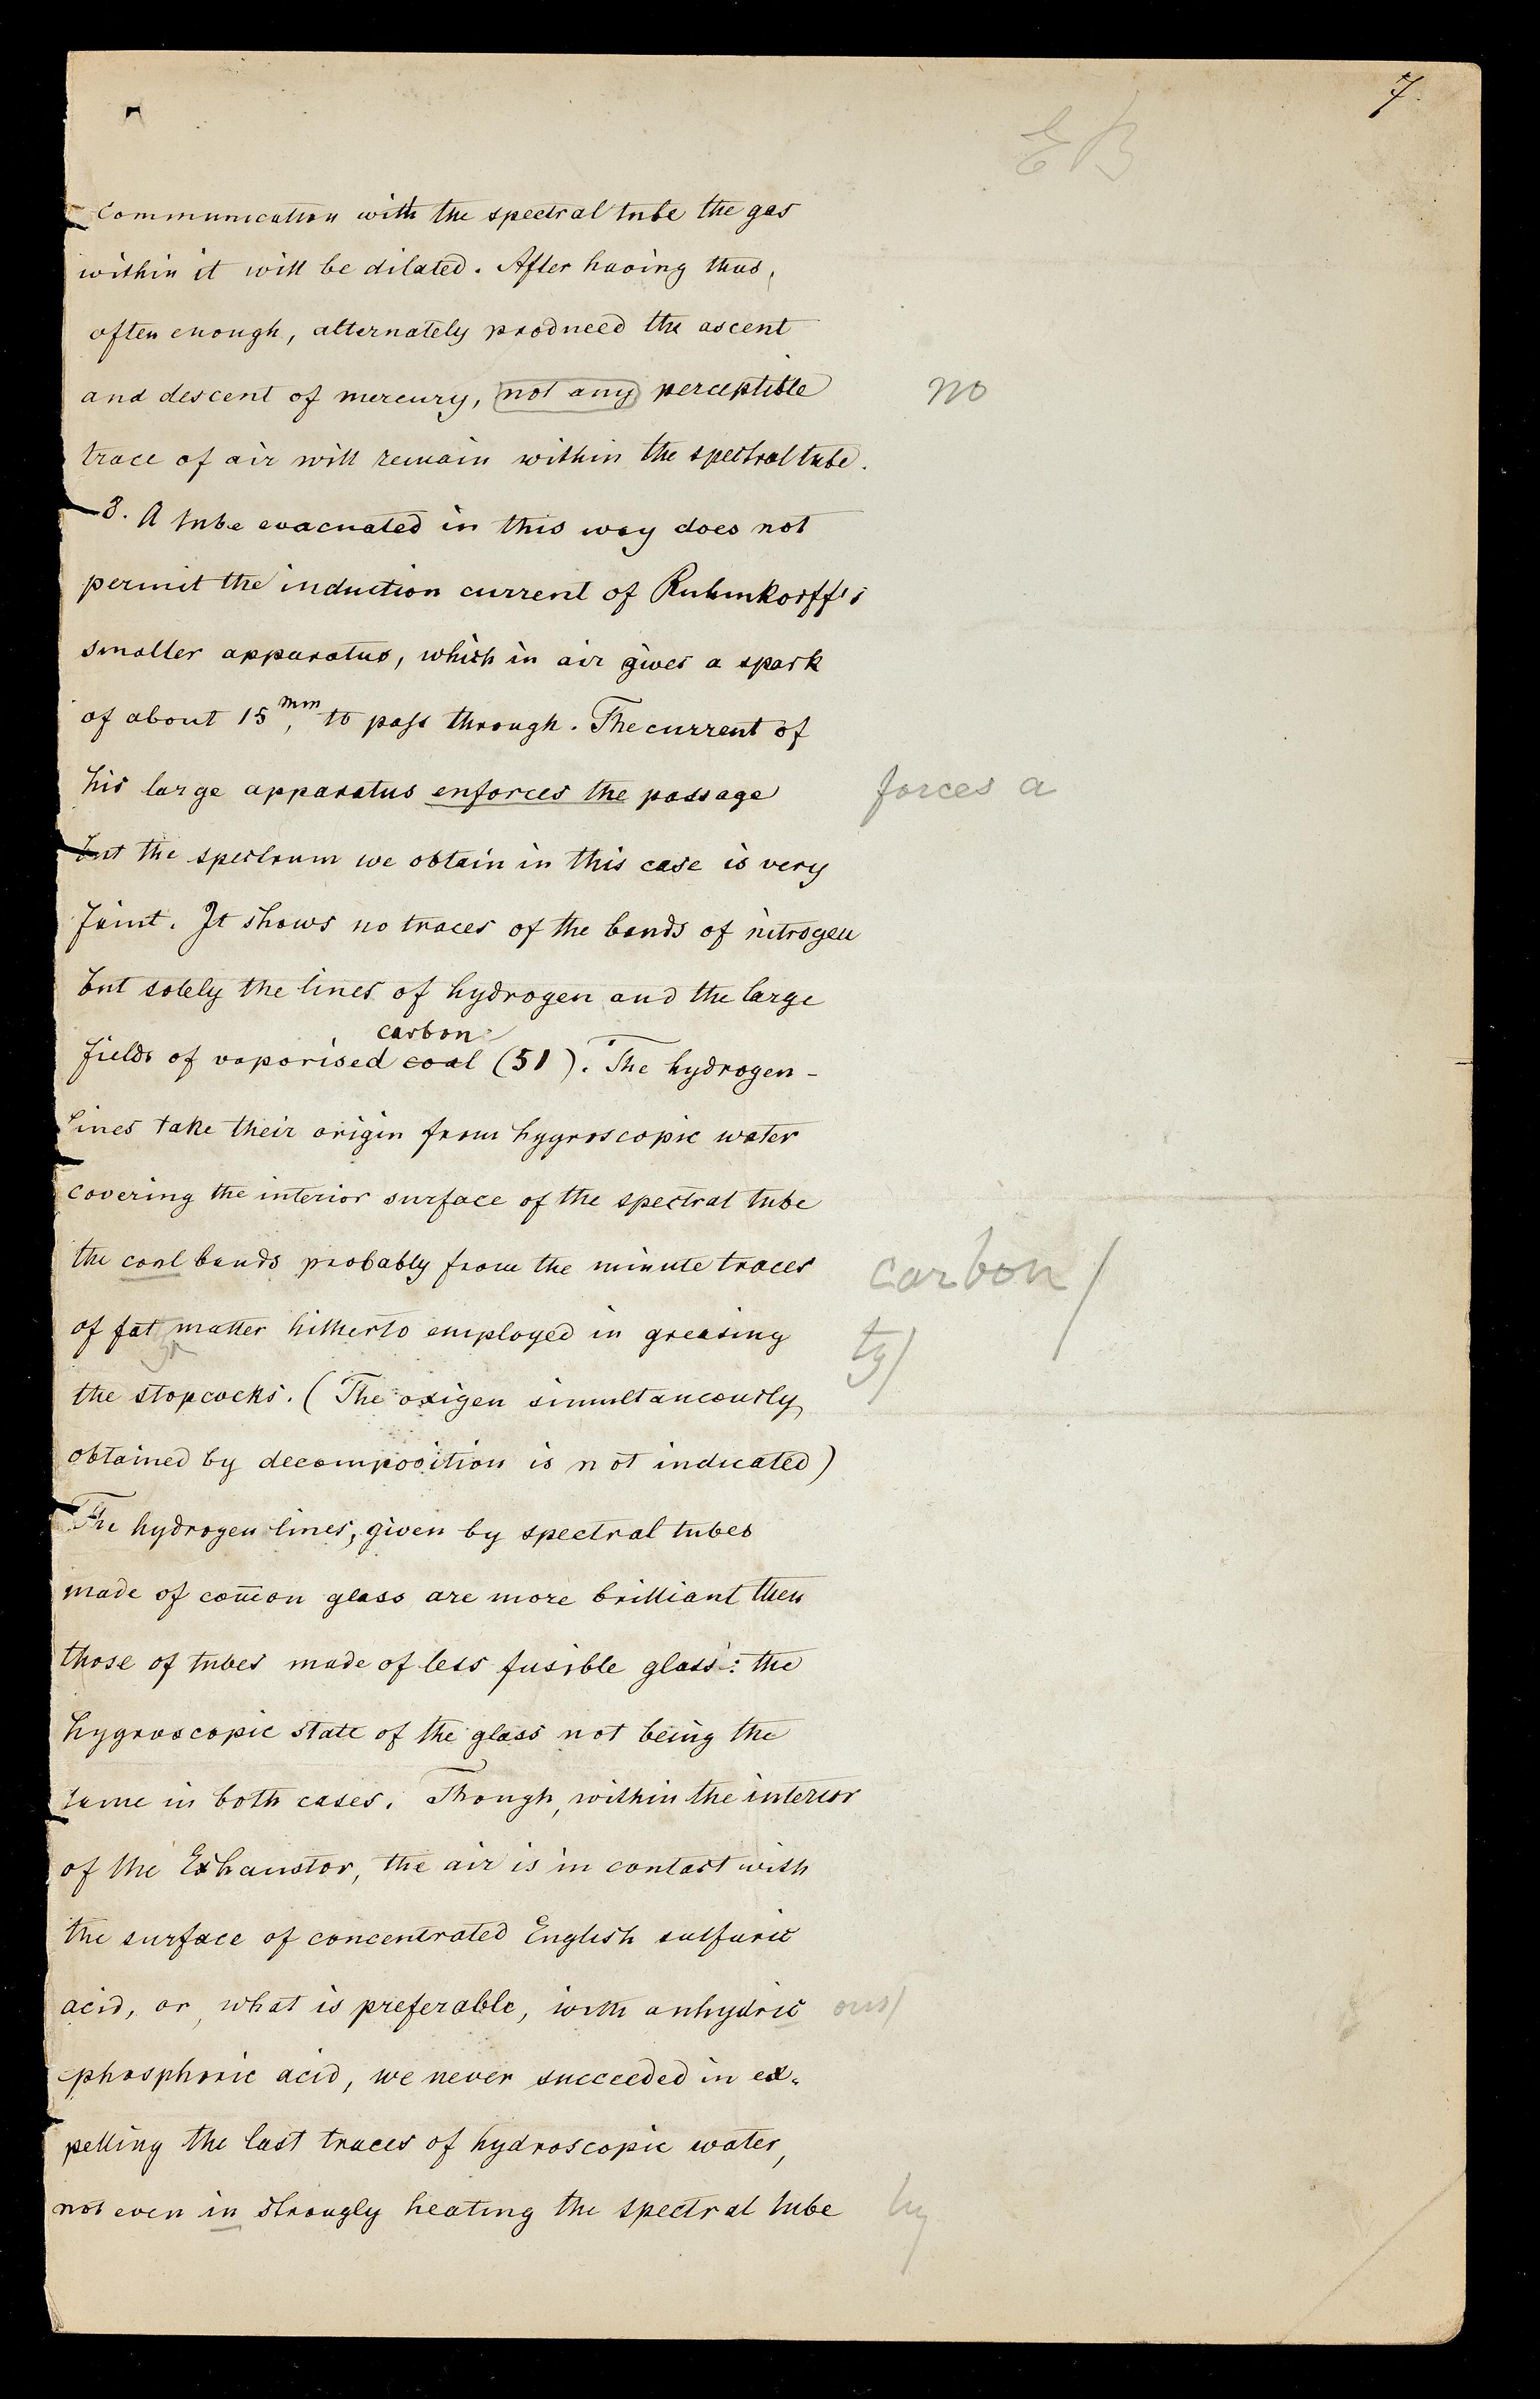 7.
EB
communication with the spectral tube the gas
within it will be dilated. After having thus,
often enough, alternately produced the ascent
and descent of mercury, not any perceptible
no
trace of air will remain within the spectral tube.
8. A tube evacuated in this way does not
permit the induction current of Ruhmkorff's
smaller apparatus, which in air gives a spark
of about 15mm, to pass through. The current of
his large apparatus enforces the passage
forces a
but the spectrum we obtain in this case is very
faint. It shows no traces of the bands of nitrogen
but solely the lines of hydrogen and the large
carbon
fields of vaporised coal (51). The hydrogen-
lines take their origin from hygroscopic water
covering the interior surface of the spectral tube
the coal bands probably from the minute traces
carbon/
of fat matter hitherto employed in greasing
ty/
the stopcocks. (The oxigen simultaneously
obtained by decomposition is not indicated)
The hydrogen lines, given by spectral tubes
made of com̅on glass are more brilliant then
those of tubes made of less fusible glass: the
hygroscopic state of the glass not being the
same in both cases. Though, within the interior
of the Exhaustor, the air is in contact with
the surface of concentrated English sulfuric
acid, or, what is preferable, with anhydric
ous/
phosphoric acid, we never succeeded in ex-
pelling the last traces of hydroscopic water,
not even in strongly heating the spectral tube
by